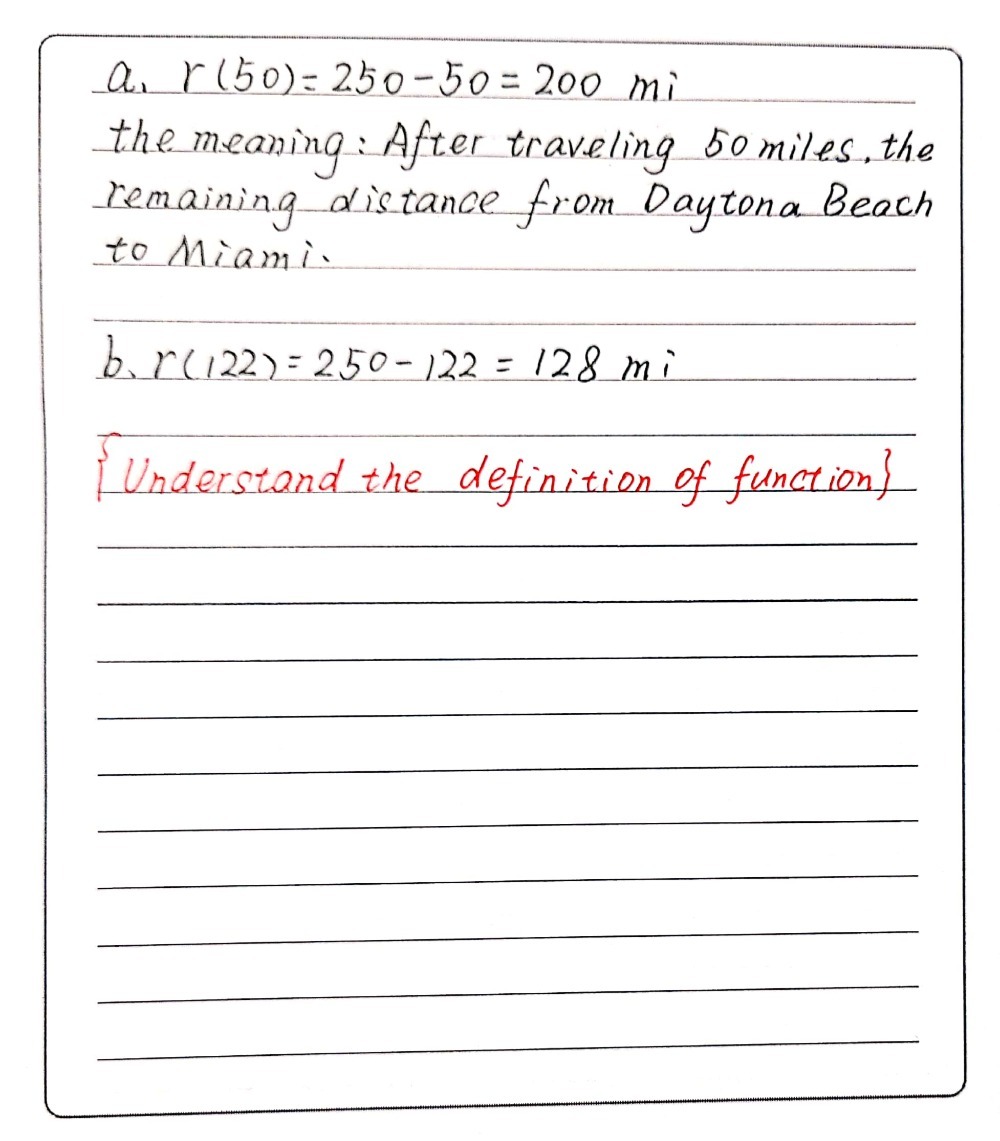 a. r(50)=250-50=200 mi
the meaning: After traveling 50 miles, the
remaining distance from Daytona Beach
to Miami.
b. r(122)=250-122=128 mi
{Understand the definition of function}